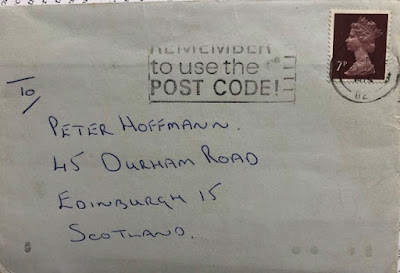 REMEMBER
to use the
POST CODE!
7P
82
TO
PETER HOFFMANN.
45 DURHAM ROAD
EDINBURGH 15
SCOTLAND.